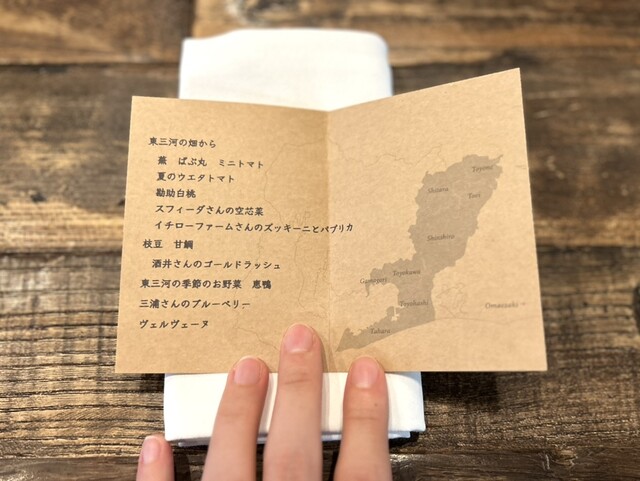 東三河の畑から
蕪 ぱぷ丸 ミニトマト
夏のウエダトマト
勘助白桃
スフィーダさんの空芯菜
イチローファームさんのズッキーニとパプリカ
枝豆 甘鯛
酒井さんのゴールドラッシュ
東三河の季節のお野菜 恵鴨
三浦さんのブルーベリー
ヴェルヴェーヌ
Toyone
Shitara
Toei
Shinshiro
Gamagori
Toyokawa
Toyohashi
Omaezaki
Tahara